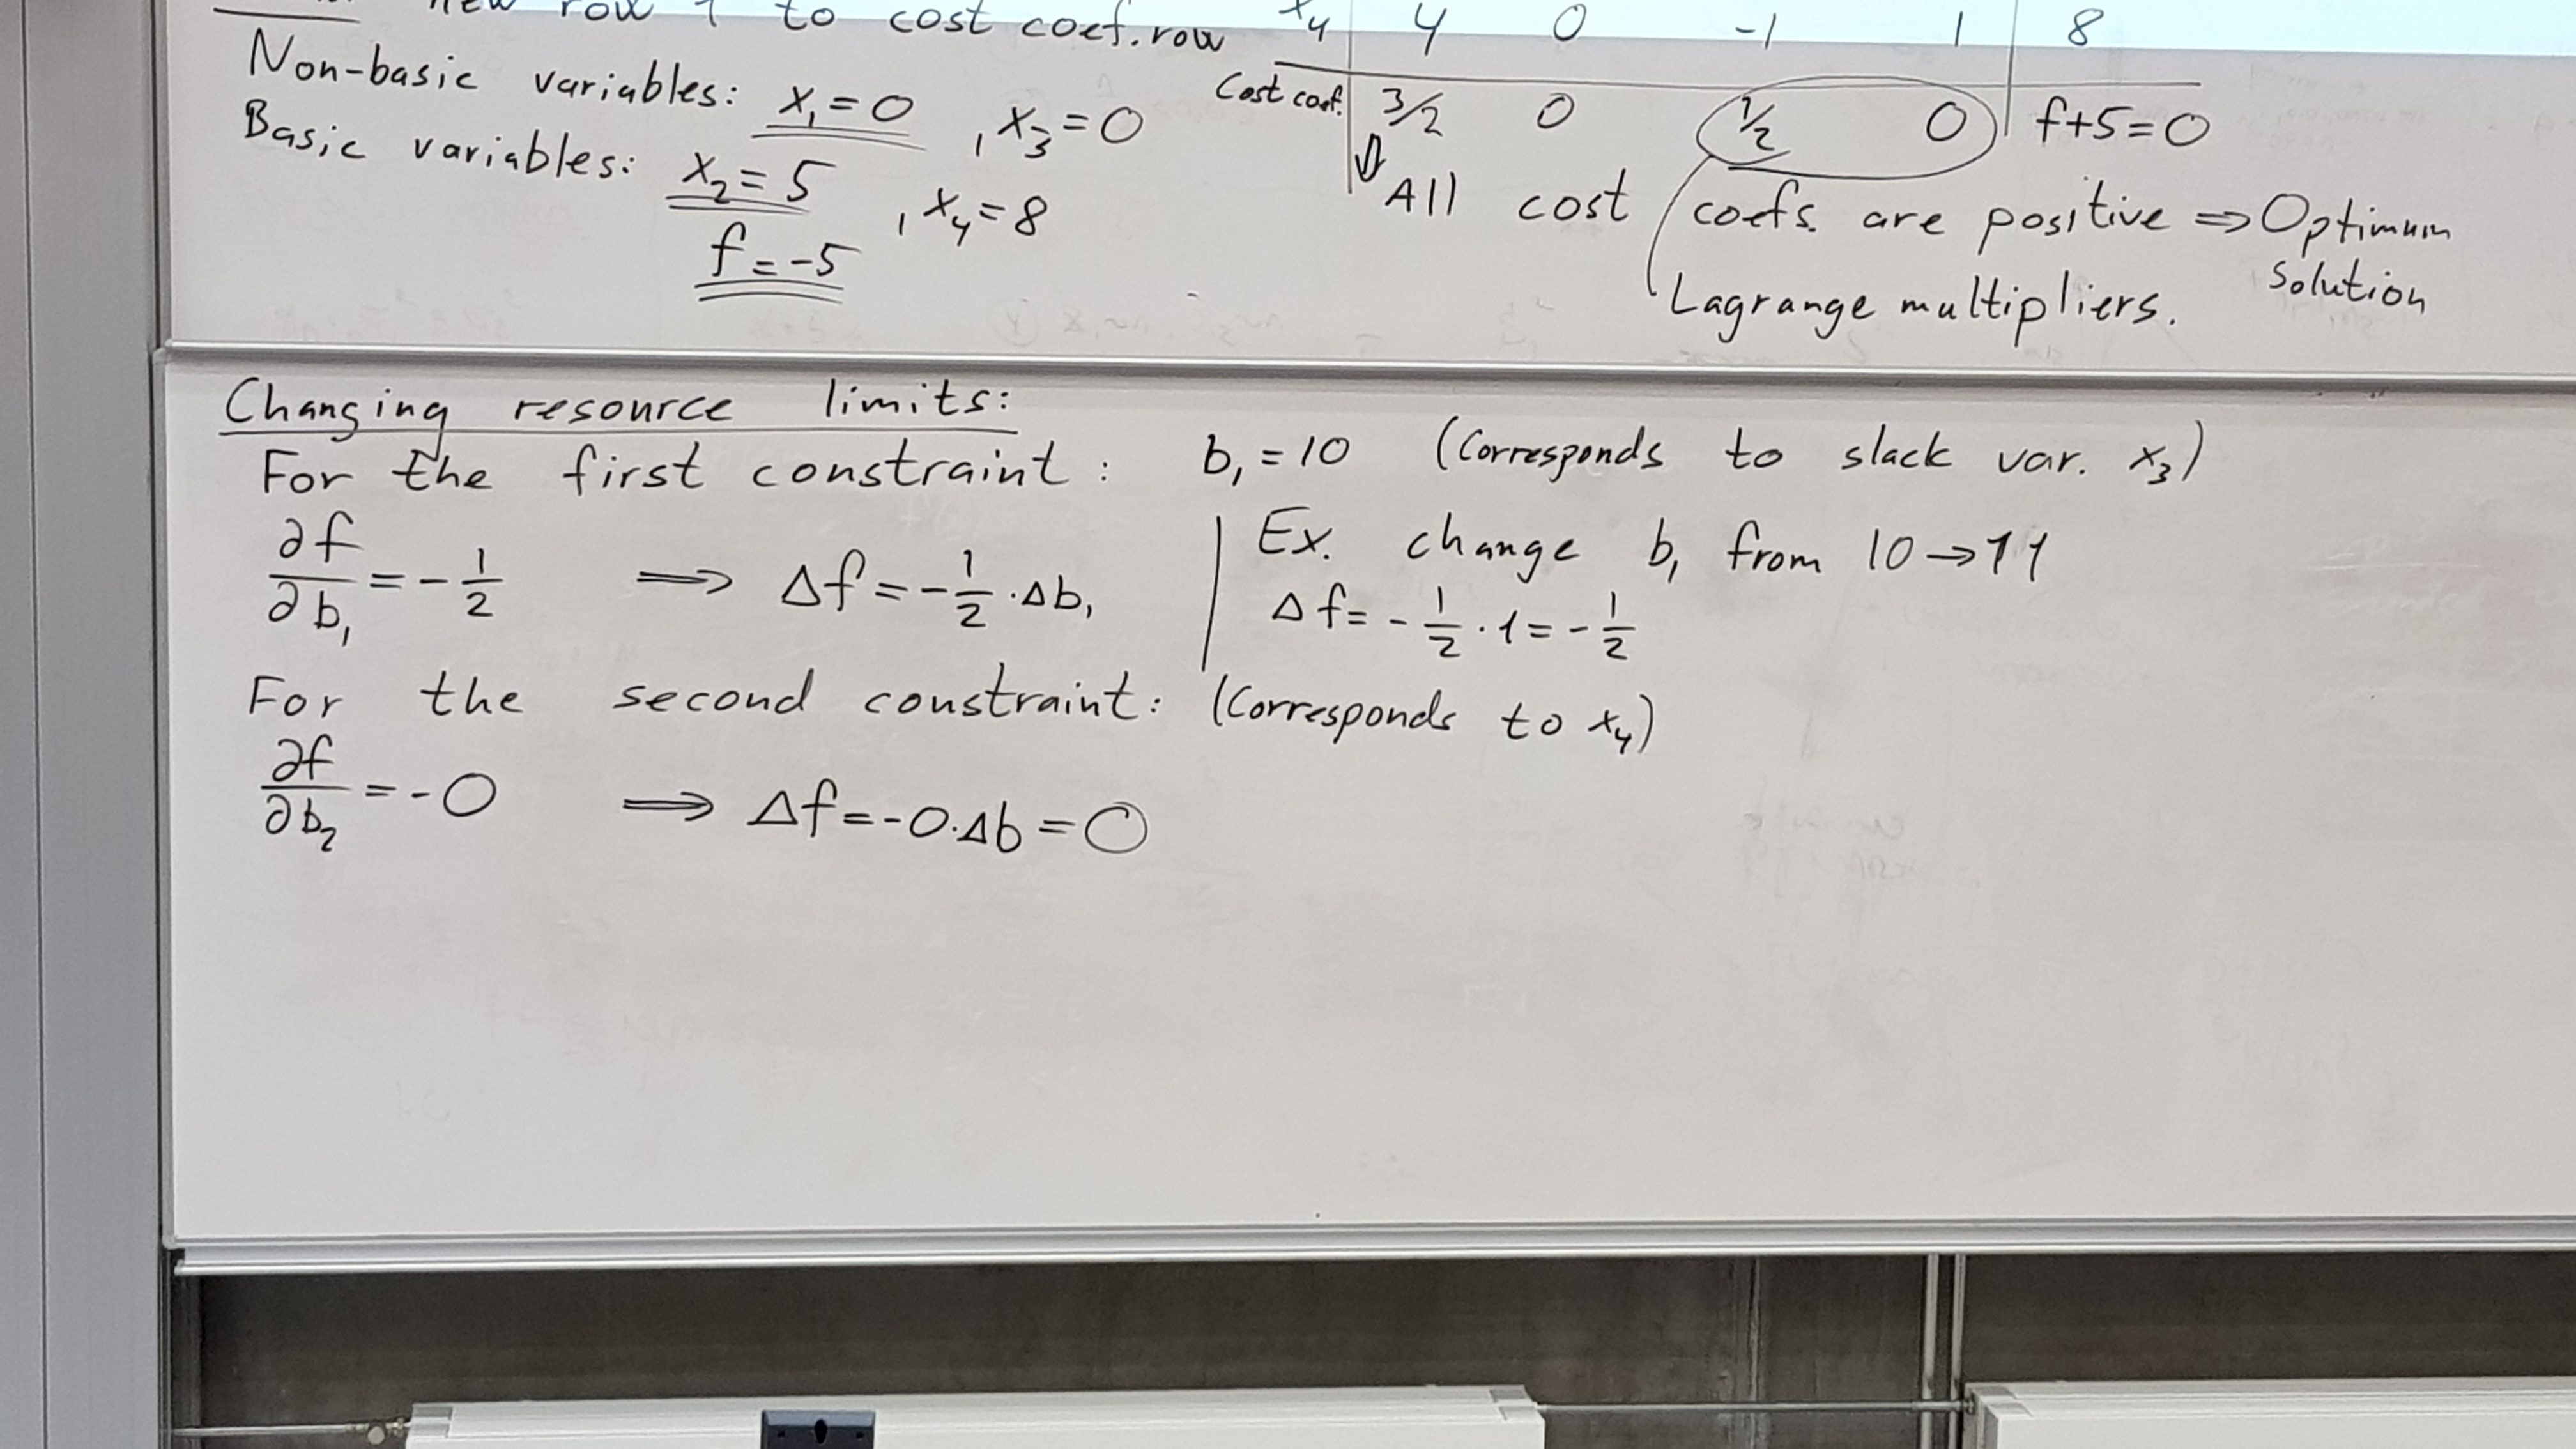 new row 1 to cost coef. row
x₄ 4 0 -1 1 8
Non-basic variables: x₁=0 , x₃=0
Cost coef. 3/2 0 1/2 0 f+5=0
Basic variables: x₂=5 , x₄=8
⇓ All cost coefs. are positive ⇒ Optimum
solution
f=-5
Lagrange multipliers.
Changing resource limits:
For the first constraint: b₁=10 (Corresponds to slack var. x₃)
∂f/∂b₁ = -1/2 ⟹ Δf = -1/2·Δb₁
Ex. change b₁ from 10→11
Δf = -1/2·1 = -1/2
For the second constraint: (Corresponds to x₄)
∂f/∂b₂ = -0 ⟹ Δf=-0·Δb=0